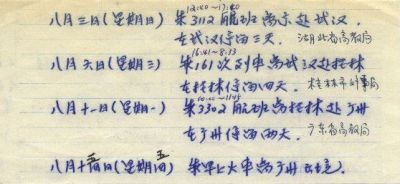 12:40—17:40
八月三日(星期日) 乘3112航班离京赴武汉,
在武汉停留三天。湖北省高教局
16:41—8:33
八月六日(星期三) 乘161次列车离武汉赴桂林
在桂林停留四天。桂林市外事局
八月十一日(星期一) 乘3302航班离桂林赴广州
在广州停留两天。广东省高教局
八月十五日(星期五) 乘早上火车离广州出境。